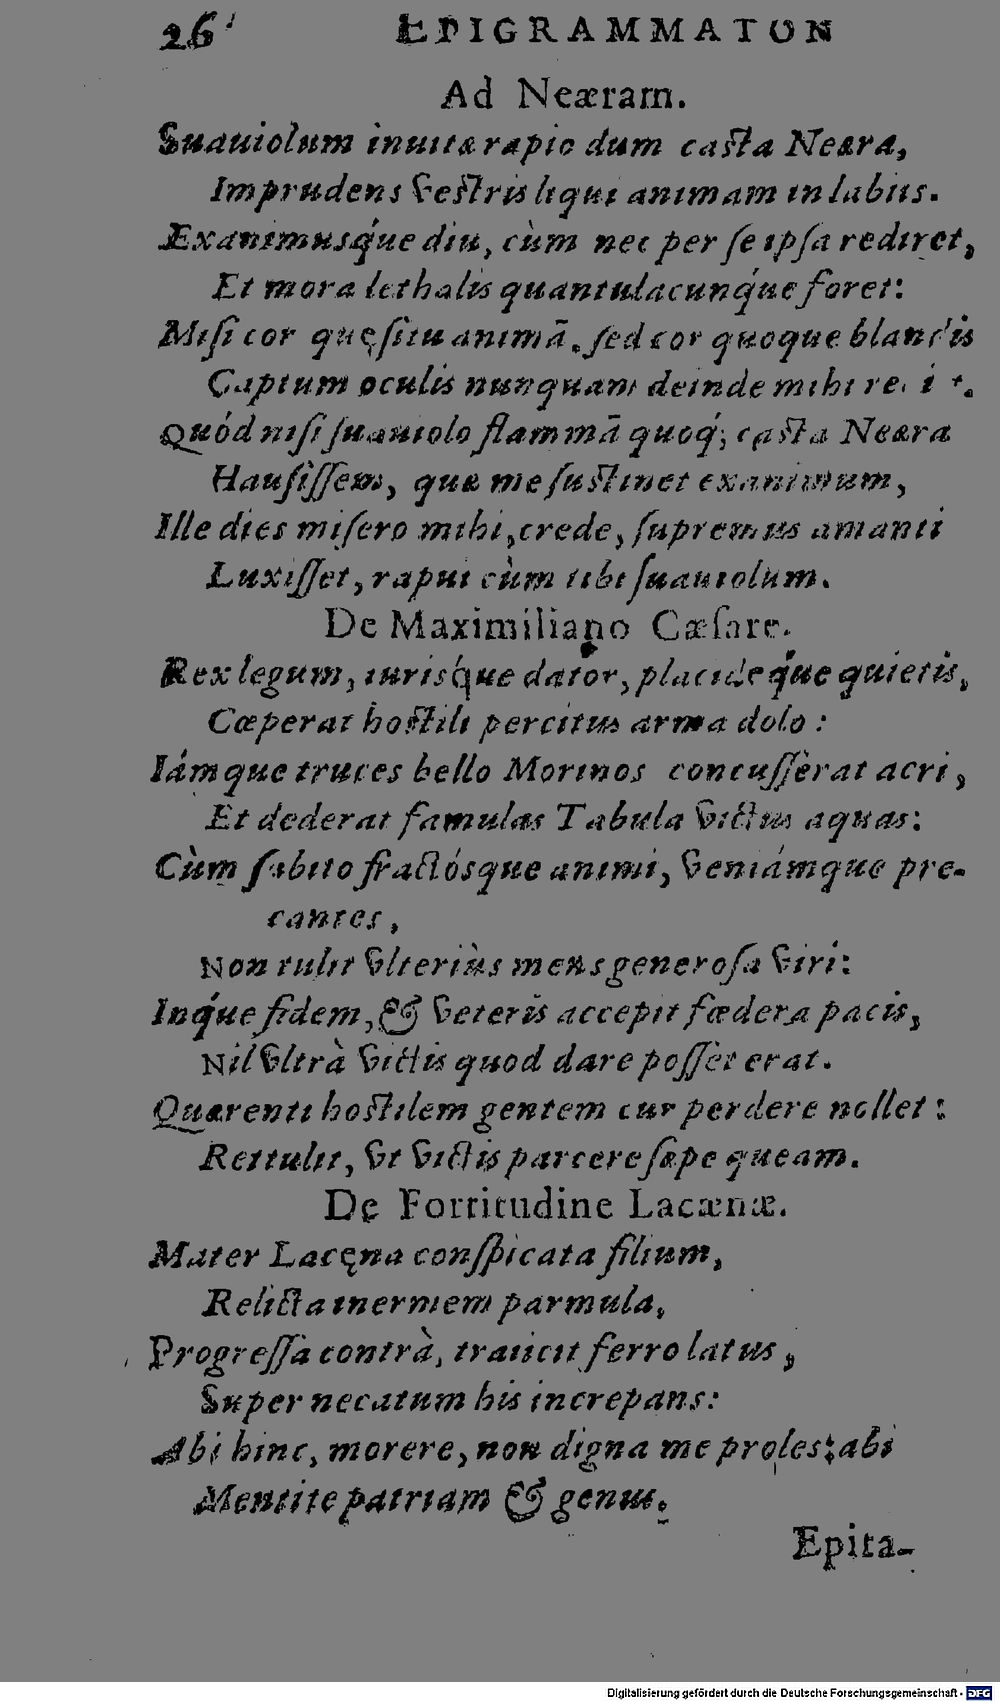 26 EPIGRAMMATON
Ad Neæram.
Suauiolum inuitæ rapio dum casta Neæra,
Imprudens vestris liqui animam in labiis.
Exanimusq́ue diu, cùm nec per se ipsa rediret,
Et mora lethalis quantulacunq́ue foret:
Misi cor quęsitu animā. sed cor quoque blandis
Captum oculis nunquam deinde mihi
Quód nisi suauiolo flammā quoq́; casta Neæra
Hausissem, quæ me sustinet exanimum,
Ille dies misero mihi, crede, supremus amanti
Luxisset, rapui cùm tibi suauiolum.
De Maximiliano Cæsare.
Rex legum, iurisq́ue dator, placidæq́ue quietis,
Cœperat hostili percitus arma dolo:
Iámque truces bello Morinos concusserat acri,
Et dederat famulas Tabula victus aquas:
Cùm subito fractósque animi, veniámque pre-
cantes,
Non tulit vlteriùs mens generosa viri:
Inq́ue fidem, & veteris accepit fœdera pacis,
Nil vltrà victis quod dare posset erat.
Quærenti hostilem gentem cur perdere nollet:
Rettulit, vt victis parcere sæpe queam.
De Fortitudine Lacænæ.
Mater Lacęna conspicata filium,
Relicta inermem parmula,
Progressa contrà, traiicit ferro latus,
Super necatum his increpans:
Abi hinc, morere, non digna me proles: abi
Mentite patriam & genus.
Epita-
Digitalisierung gefördert durch die Deutsche Forschungsgemeinschaft - DFG